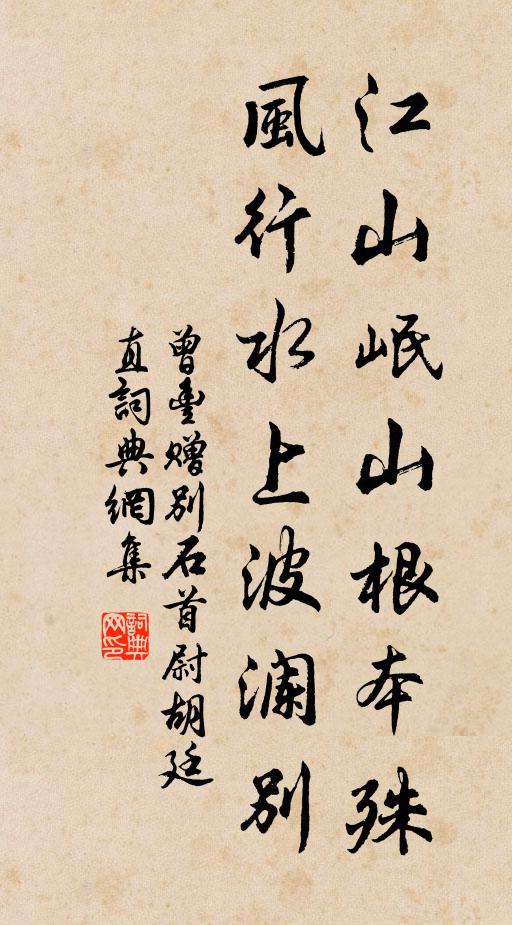 江山岷山根本殊
風行水上波瀾別
曾豐贈別石首尉胡廷
直詞典網集
詞典
网印